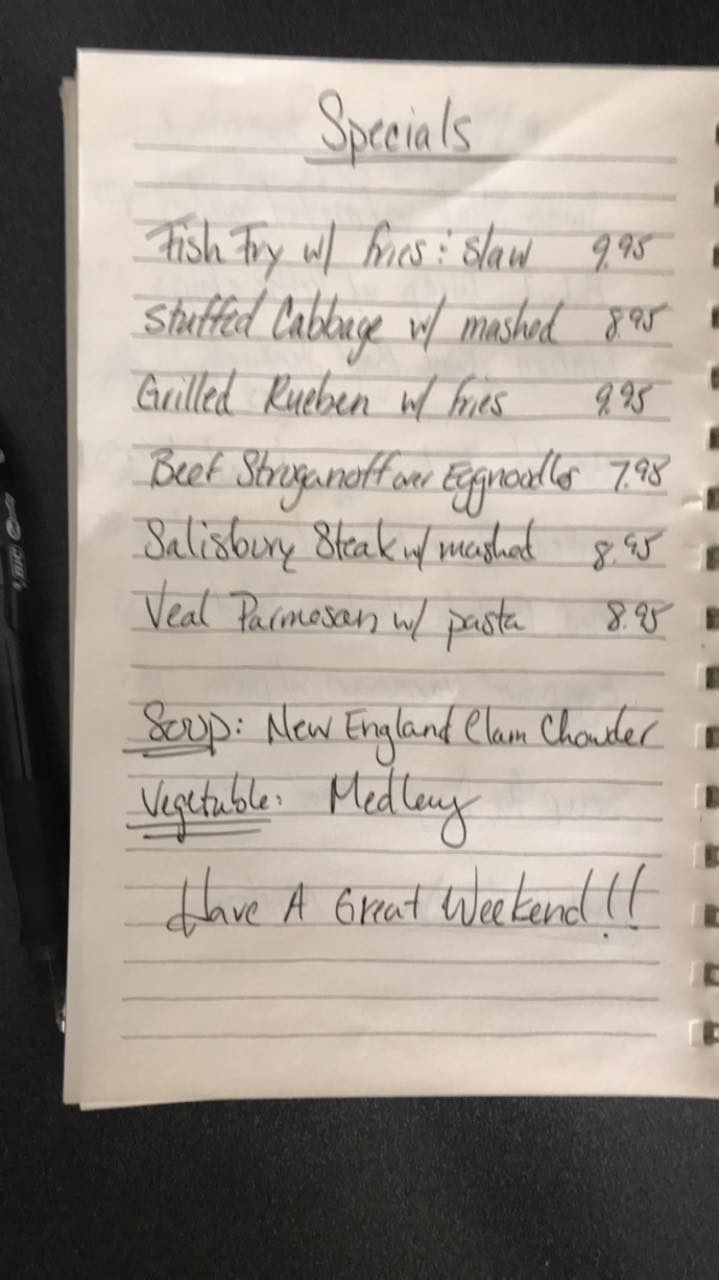 Specials
Fish Fry w/ fries : slaw 9.95
Stuffed Cabbage w/ mashed 8.95
Grilled Rueben w/ fries 9.95
Beef Stroganoff over Eggnoodles 7.95
Salisbury Steak w/ mashed 8.95
Veal Parmesan w/ pasta 8.95
Soup: New England Clam Chowder
Vegetable: Medley
Have A Great Weekend!!
BIC